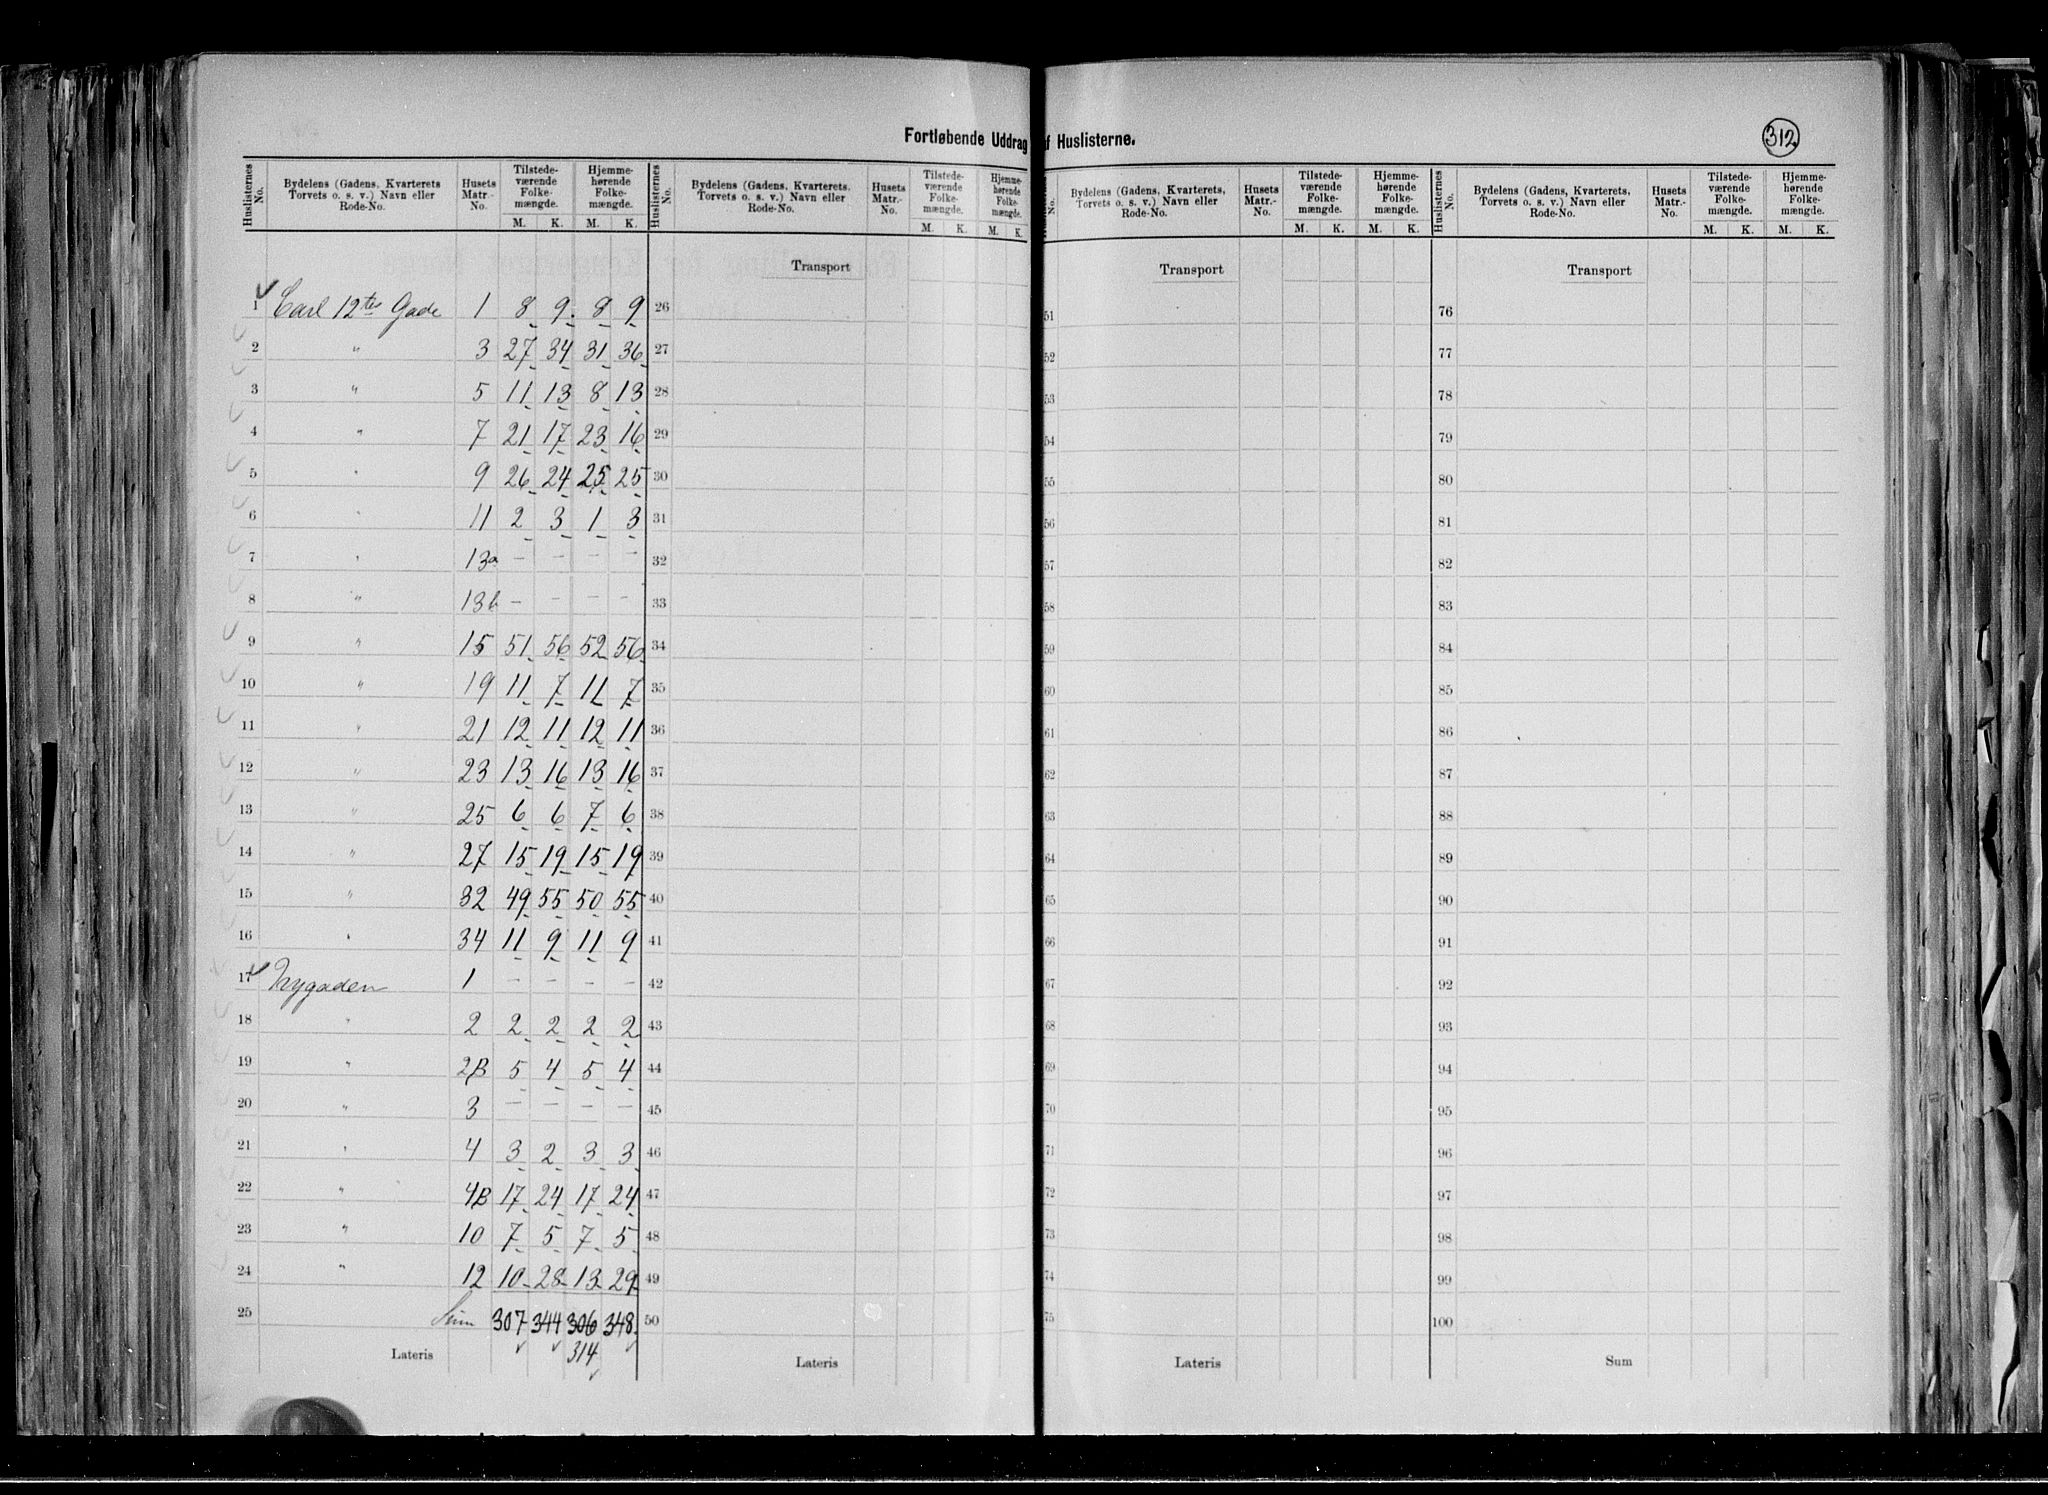 Fortløbende Uddrag af Huslisterne.
312
Huslisternes No. Bydelens (Gadens, Kvarterets Torvets o. s. v.) Navn eller Rode-No. Husets Matr.-No. Tilstede-værende Folke-mængde. M. K. Hjemme-hørende Folke-mængde. M. K.
1 Carl 12tes Gade 1 8 9 8 9
2 " 3 27 34 31 36
3 " 5 11 13 8 13
4 " 7 21 17 23 16
5 " 9 26 24 25 25
6 " 11 2 3 1 3
7 " 13a — — — —
8 " 13b — — — —
9 " 15 51 56 52 56
10 " 19 11 7 11 7
11 " 21 12 11 12 11
12 " 23 13 16 13 16
13 " 25 6 6 7 6
14 " 27 15 19 15 19
15 " 32 49 55 50 55
16 " 34 11 9 11 9
17 Nygaden 1 — — — —
18 " 2 2 2 2 2
19 " 2B 5 4 5 4
20 " 3 — — — —
21 " 4 3 2 3 3
22 " 4B 17 24 17 24
23 " 10 7 5 7 5
24 " 12 10 28 13 29
25 Sum 307 344 306 348
314
Lateris
Huslisternes No. Bydelens (Gadens, Kvarterets, Torvets o. s. v.) Navn eller Rode-No. Husets Matr.-No. Tilstede-værende Folke-mængde. M. K. Hjemme-hørende Folke-mængde. M. K.
Transport
26
27
28
29
30
31
32
33
34
35
36
37
38
39
40
41
42
43
44
45
46
47
48
49
50
Lateris
No. Bydelens (Gadens, Kvarterets, Torvets o. s. v.) Navn eller Rode-No. Husets Matr.-No. Tilstede-værende Folke-mængde. M. K. Hjemme-hørende Folke-mængde. M. K.
Transport
51
52
53
54
55
56
57
58
59
60
61
62
63
64
65
66
67
68
69
70
71
72
73
74
75
Lateris
Huslisternes No. Bydelens (Gadens, Kvarterets, Torvets o. s. v.) Navn eller Rode-No. Husets Matr.-No. Tilstede-værende Folke-mængde. M. K. Hjemme-hørende Folke-mængde. M. K.
Transport
76
77
78
79
80
81
82
83
84
85
86
87
88
89
90
91
92
93
94
95
96
97
98
99
100
Sum